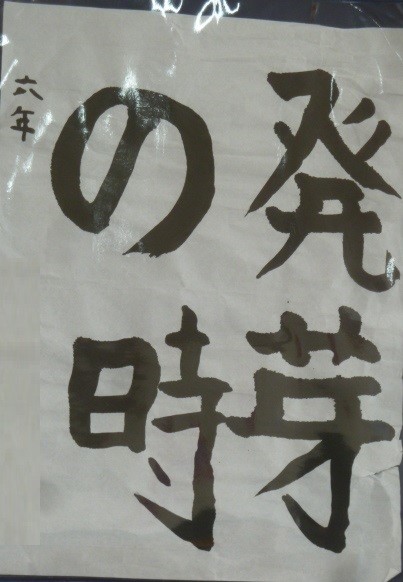 発芽
の時
六年